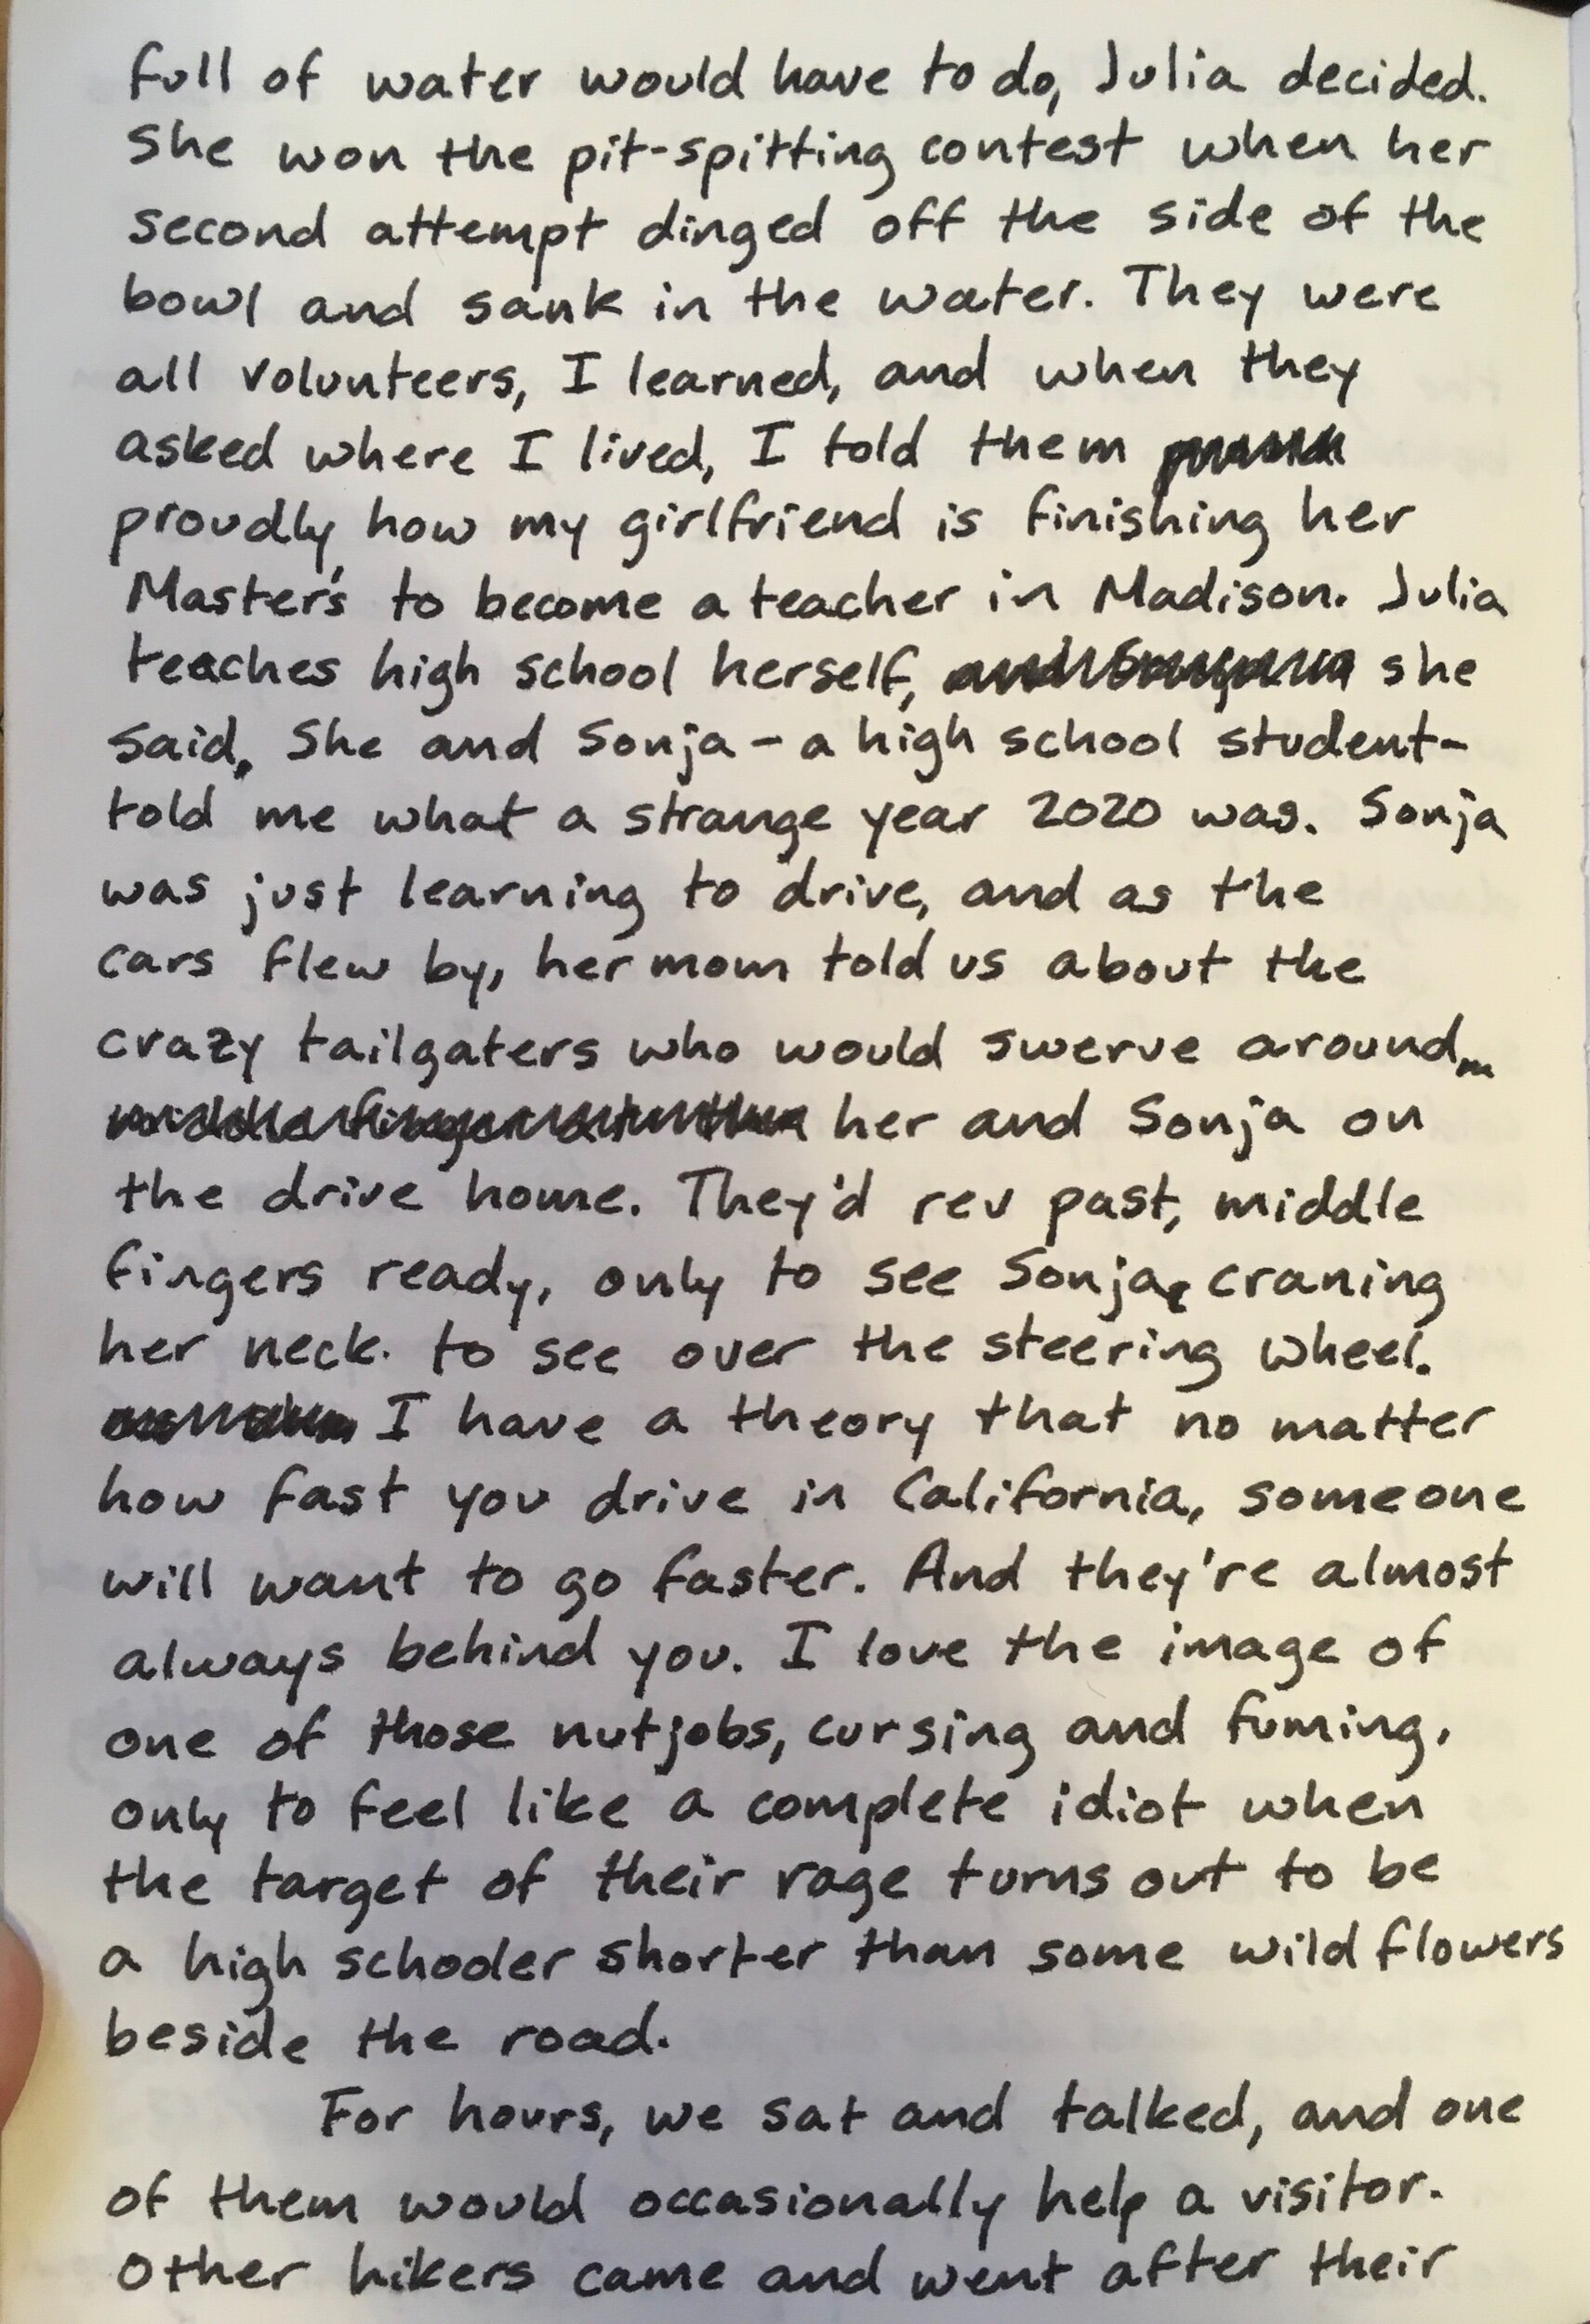 full of water would have to do, Julia decided.
She won the pit-spitting contest when her
second attempt dinged off the side of the
bowl and sank in the water. They were
all volunteers, I learned, and when they
asked where I lived, I told them
proudly how my girlfriend is finishing her
Master's to become a teacher in Madison. Julia
teaches high school herself, she
said. She and Sonja - a high school student-
told me what a strange year 2020 was. Sonja
was just learning to drive, and as the
cars flew by, her mom told us about the
crazy tailgaters who would swerve around
her and Sonja on
the drive home. They'd rev past, middle
fingers ready, only to see Sonja, craning
her neck to see over the steering wheel.
I have a theory that no matter
how fast you drive in California, someone
will want to go faster. And they're almost
always behind you. I love the image of
one of those nutjobs, cursing and fuming,
only to feel like a complete idiot when
the target of their rage turns out to be
a high schooler shorter than some wildflowers
beside the road.
For hours, we sat and talked, and one
of them would occasionally help a visitor.
Other hikers came and went after their